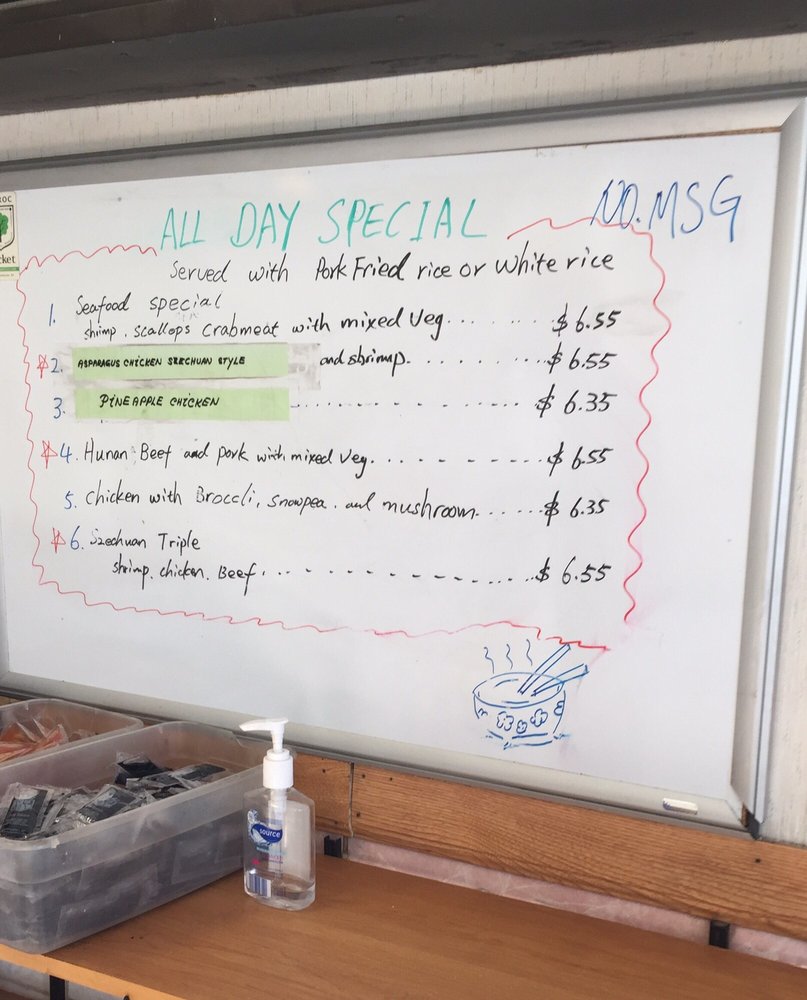 ALL DAY SPECIAL
NO.MSG
Served with Pork Fried rice or White rice
1. Seafood special
shrimp. scallops crabmeat with mixed Veg........ $6.55
2. ASPARAGUS CHICKEN SZECHUAN STYLE and shrimp........ $6.55
3. PINEAPPLE CHICKEN ........ $6.35
4. Hunan Beef and pork with mixed Veg........ $6.55
5. Chicken with Broccli, Snowpea. and mushroom....... $6.35
6. Szechuan Triple
shrimp. chicken. Beef........ $6.55
source